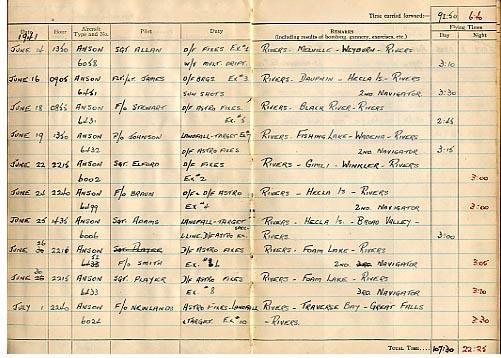 Time carried forward:- 92:50 6:6
1941
Date Hour Aircraft Type and No. Pilot Duty REMARKS Flying Times
(including results of bombing, gunnery, exercises, etc.) Day Night
JUNE 14 1350 ANSON SGT ALLAN D/F FIXES EX#2 RIVERS - MELVILLE - WEYBURN - RIVERS
6058 W/V MULT. DRIFT. 3:10
JUNE 16 0905 ANSON FLT/LT JAMES D/F BRGS. EX#3 RIVERS - DAUPHIN - HECLA IS - RIVERS
6451 SUN SHOTS 2ND NAVIGATOR. 3:30
JUNE 18 ANSON F/O STEWART D/F ASTRO FIXES RIVERS - BLACK RIVER - RIVERS
6231 EX #5 2:45
JUNE 19 1350 ANSON P/O JOHNSON LANDFALL-TARGET RIVERS - FISHING LAKE - WADENA - RIVERS
6432 D/F ASTRO FIXES 2ND NAVIGATOR 3:15
JUNE 22 2215 ANSON SGT. ELFORD D/F FIXES RIVERS - GIMLI - WINKLER - RIVERS
6002 EX #2 3:00
JUNE 24 2240 ANSON F/O BRAUN D/F & D/F ASTRO RIVERS - HECLA IS - RIVERS
6499 EX #4 2ND NAVIGATOR 3:00
JUNE 25 1435 ANSON SGT. ADAMS LANDFALL-TARGET RIVERS - HECLA IS. - BROAD VALLEY -
6006 LLINE. D/F ASTRO EX. RIVERS 3:00
JUNE 26 2215 ANSON SGT PLAYER D/F ASTRO FIXES RIVERS - FOAM LAKE - RIVERS
F/O SMITH 2ND NAVIGATOR 3:05
JUNE 30 2215 ANSON SGT. PLAYER D/F ASTRO FIXES RIVERS - FOAM LAKE - RIVERS
6433 EX #8 3RD NAVIGATOR 3:10
JULY 1 2240 ANSON F/O NEWLANDS ASTRO FIXES - LANDFALL RIVERS - TRAVERSE BAY - GREAT FALLS
6024 & TARGET EX #10 - RIVERS. 3:30
TOTAL TIME.... 107:30 22:25